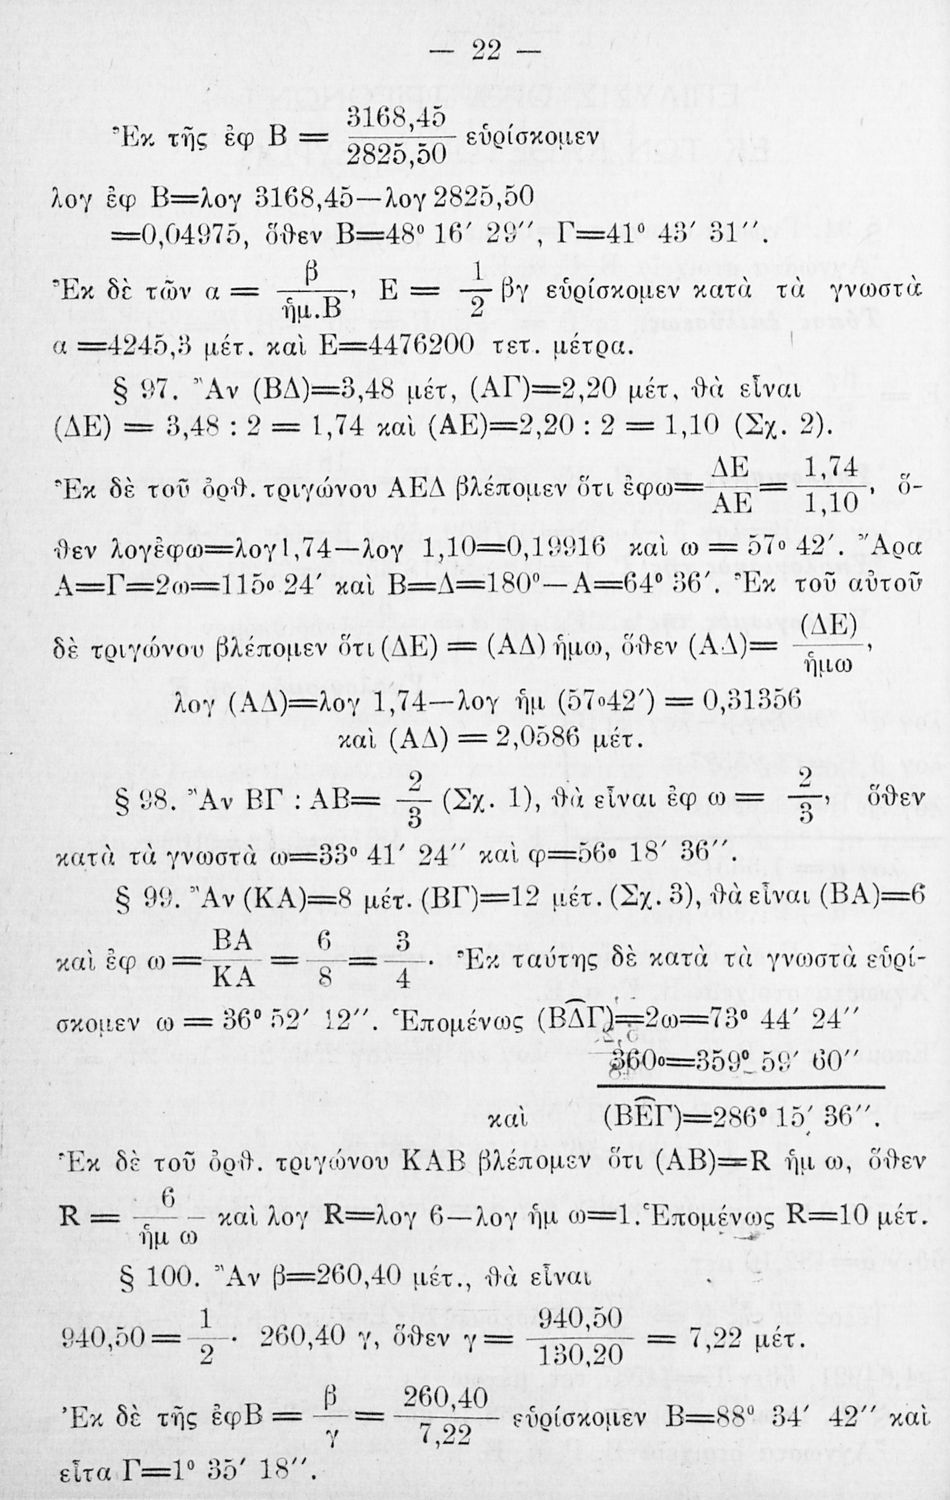 — 22 —
Ἐκ τῆς ἐφ Β = 3168,45 / 2825,50 εὑρίσκομεν
λογ ἐφ Β=λογ 3168,45—λογ 2825,50
=0,04975, ὅθεν Β=48° 16′ 29″, Γ=41° 43′ 31″.
Ἐκ δὲ τῶν α = β / ἡμ.Β, Ε = 1/2 βγ εὑρίσκομεν κατὰ τὰ γνωστὰ
α =4245,3 μέτ. καὶ Ε=4476200 τετ. μέτρα.
§ 97. Ἂν (ΒΔ)=3,48 μέτ, (ΑΓ)=2,20 μέτ, θὰ εἶναι
(ΔΕ) = 3,48 : 2 = 1,74 καὶ (ΑΕ)=2,20 : 2 = 1,10 (Σχ. 2).
Ἐκ δὲ τοῦ ὀρθ. τριγώνου ΑΕΔ βλέπομεν ὅτι ἐφω= ΔΕ / ΑΕ = 1,74 / 1,10, ὅ-
θεν λογἐφω=λογ1,74—λογ 1,10=0,19916 καὶ ω = 57° 42′. Ἄρα
Α=Γ=2ω=115° 24′ καὶ Β=Δ=180°—Α=64° 36′. Ἐκ τοῦ αὐτοῦ
δὲ τριγώνου βλέπομεν ὅτι (ΔΕ) = (ΑΔ) ἡμω, ὅθεν (ΑΔ)= (ΔΕ) / ἡμω,
λογ (ΑΔ)=λογ 1,74—λογ ἡμ (57°42′) = 0,31356
καὶ (ΑΔ) = 2,0586 μέτ.
§ 98. Ἂν ΒΓ : ΑΒ= 2/3 (Σχ. 1), θὰ εἶναι ἐφ ω = 2/3, ὅθεν
κατὰ τὰ γνωστὰ ω=33° 41′ 24″ καὶ φ=56° 18′ 36″.
§ 99. Ἂν (ΚΑ)=8 μέτ. (ΒΓ)=12 μέτ. (Σχ. 3), θὰ εἶναι (ΒΑ)=6
καὶ ἐφ ω = ΒΑ / ΚΑ = 6/8 = 3/4. Ἐκ ταύτης δὲ κατὰ τὰ γνωστὰ εὑρί-
σκομεν ω = 36° 52′ 12″. Ἑπομένως (ΒΔ͡Γ)=2ω=73° 44′ 24″
360°=359° 59′ 60″
καὶ (ΒΕ͡Γ)=286° 15′ 36″.
Ἐκ δὲ τοῦ ὀρθ. τριγώνου ΚΑΒ βλέπομεν ὅτι (ΑΒ)=R ἡμ ω, ὅθεν
R = 6 / ἡμ ω καὶ λογ R=λογ 6—λογ ἡμ ω=1. Ἑπομένως R=10 μέτ.
§ 100. Ἂν β=260,40 μέτ., θὰ εἶναι
940,50 = 1/2 · 260,40 γ, ὅθεν γ = 940,50 / 130,20 = 7,22 μέτ.
Ἐκ δὲ τῆς ἐφΒ = β/γ = 260,40 / 7,22 εὑρίσκομεν Β=88° 34′ 42″ καὶ
εἶτα Γ=1° 35′ 18″.